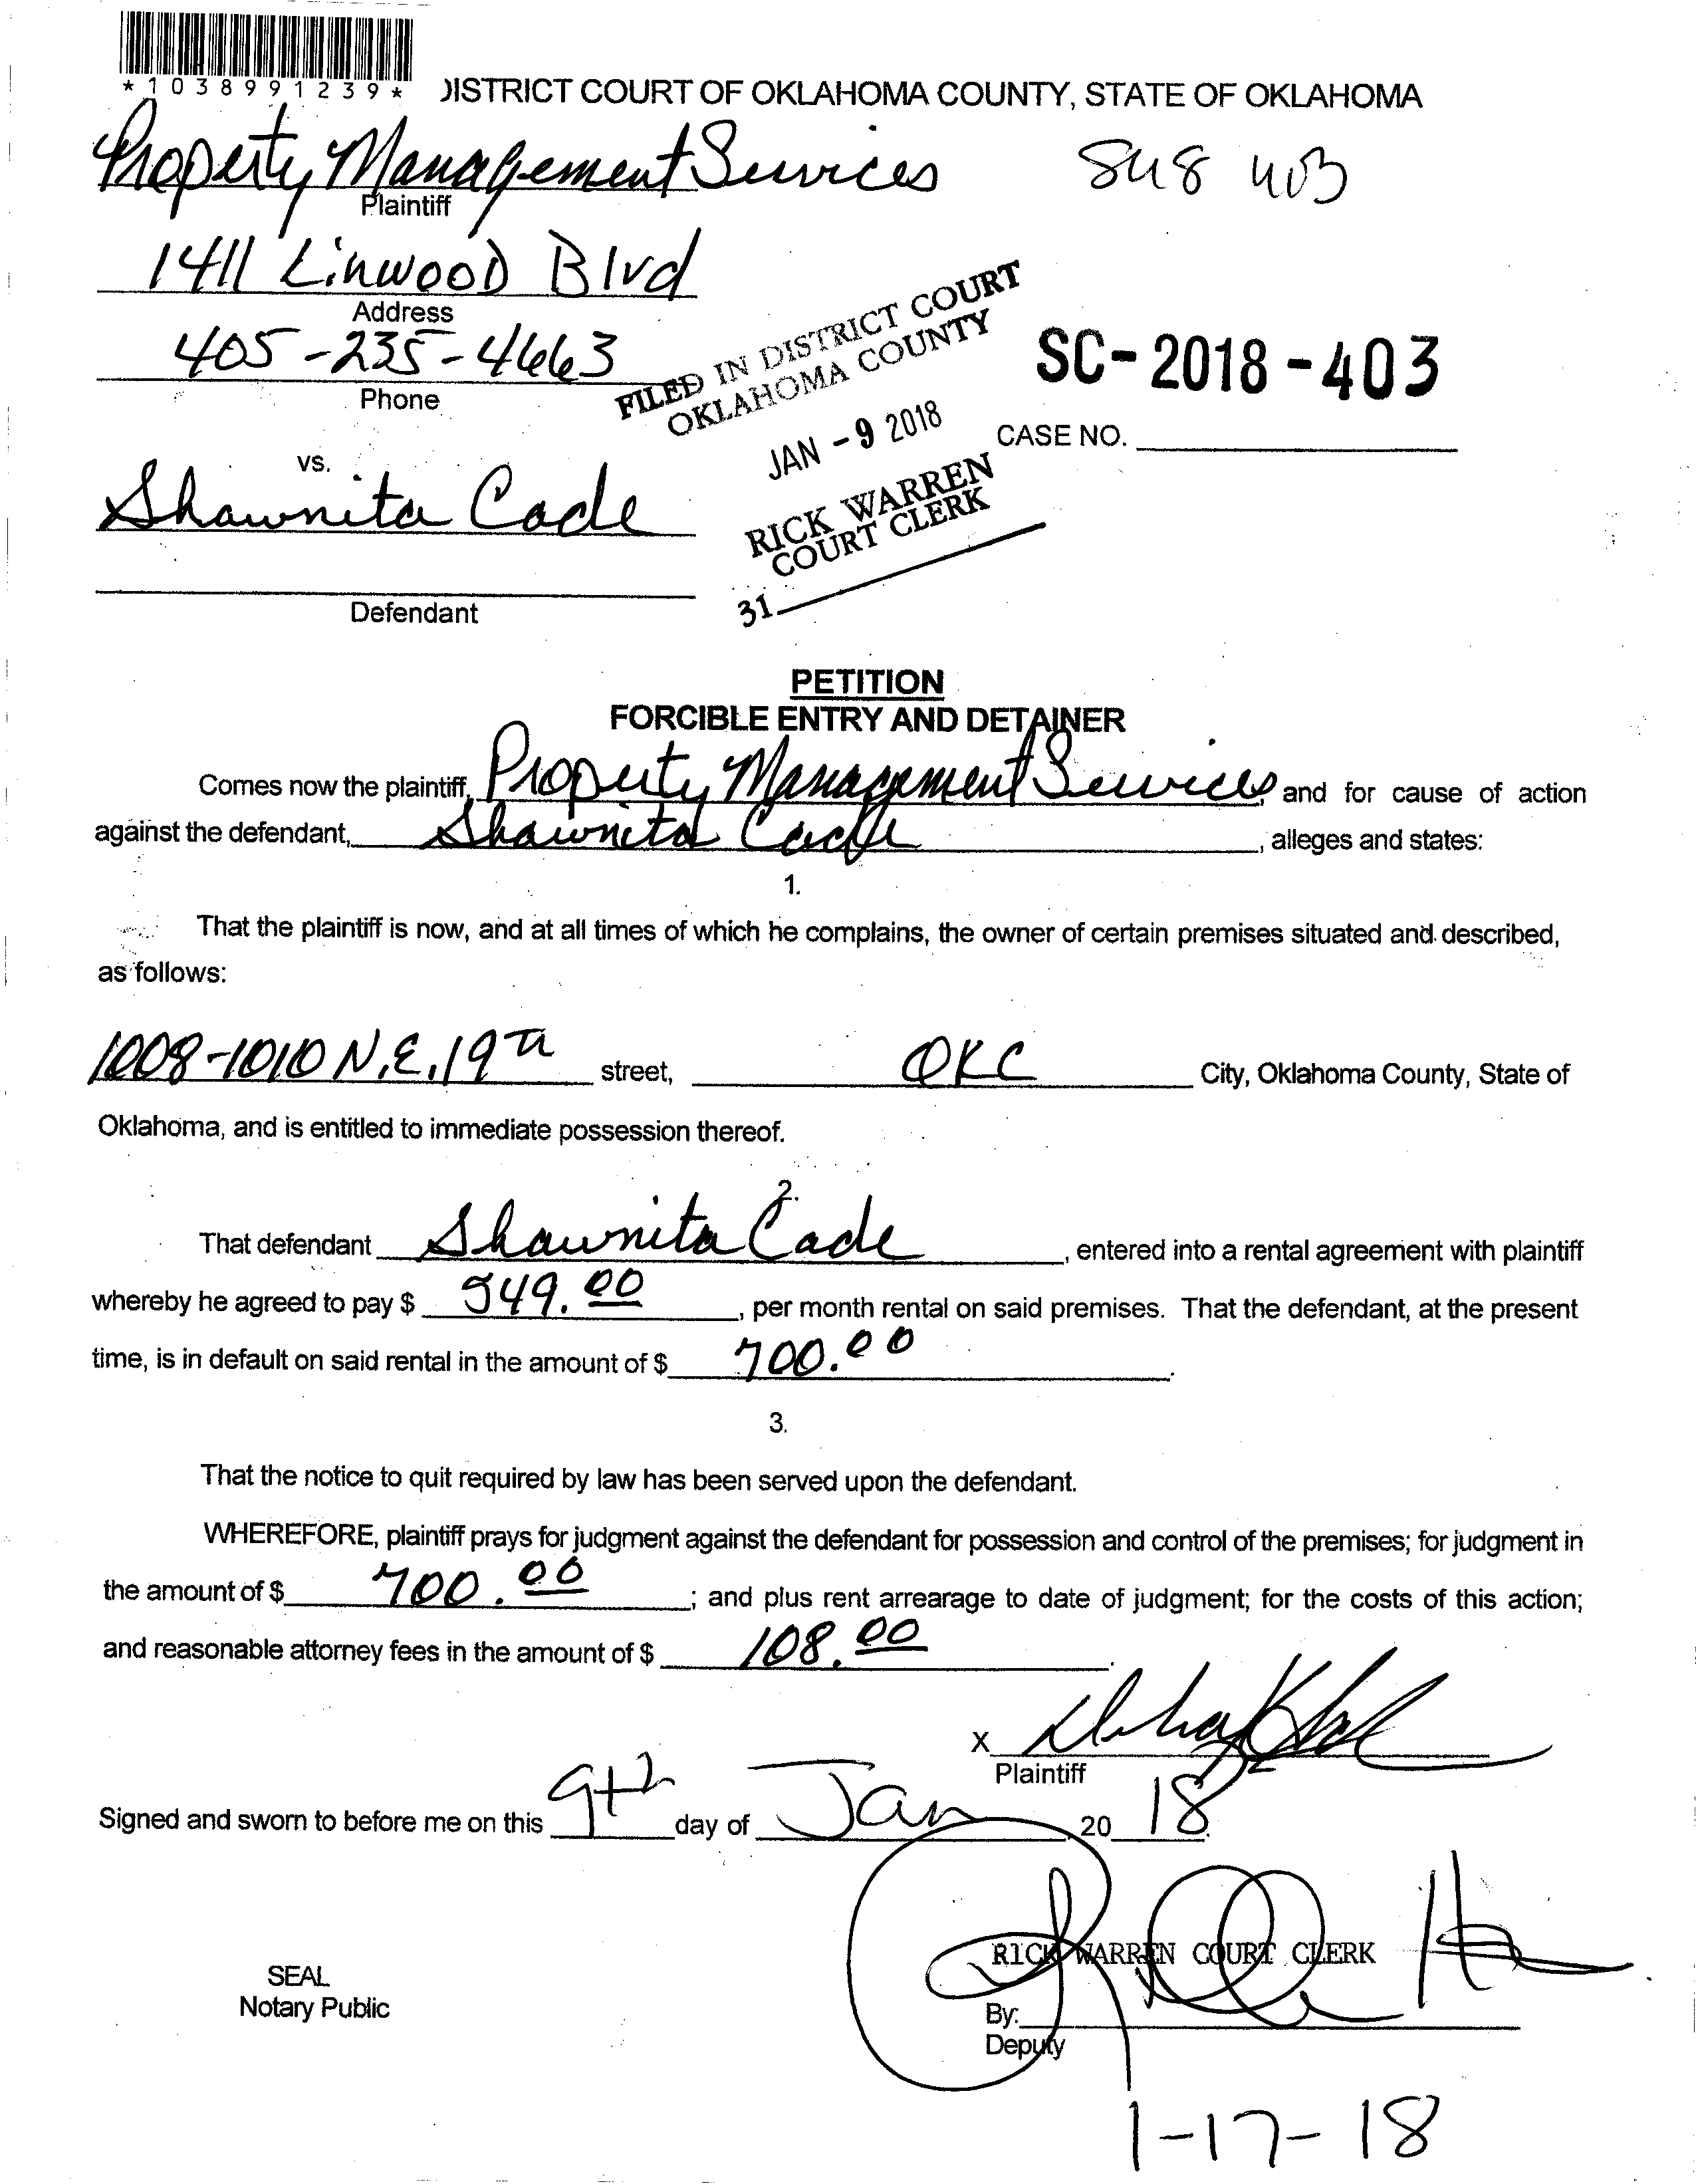 *1038991239*
DISTRICT COURT OF OKLAHOMA COUNTY, STATE OF OKLAHOMA
Property Management Services
Plaintiff
1411 Linwood Blvd
Address
405-235-4663
Phone
FILED IN DISTRICT COURT
OKLAHOMA COUNTY
JAN - 9 2018
RICK WARREN
COURT CLERK
31
SC-2018-403
CASE NO.
vs.
Shawnita Cade
Defendant
PETITION
FORCIBLE ENTRY AND DETAINER
Comes now the plaintiff, Property Management Services, and for cause of action
against the defendant, Shawnita Cade, alleges and states:
1.
That the plaintiff is now, and at all times of which he complains, the owner of certain premises situated and described,
as follows:
1008-1010 N.E. 19th street, OKC City, Oklahoma County, State of
Oklahoma, and is entitled to immediate possession thereof.
2.
That defendant Shawnita Cade, entered into a rental agreement with plaintiff
whereby he agreed to pay $ 549.00, per month rental on said premises. That the defendant, at the present
time, is in default on said rental in the amount of $ 700.00.
3.
That the notice to quit required by law has been served upon the defendant.
WHEREFORE, plaintiff prays for judgment against the defendant for possession and control of the premises; for judgment in
the amount of $ 700.00; and plus rent arrearage to date of judgment; for the costs of this action;
and reasonable attorney fees in the amount of $ 108.00.
X
Plaintiff
Signed and sworn to before me on this 9th day of Jan, 20 18.
RICK WARREN COURT CLERK
SEAL
Notary Public
By:
Deputy
1-17-18